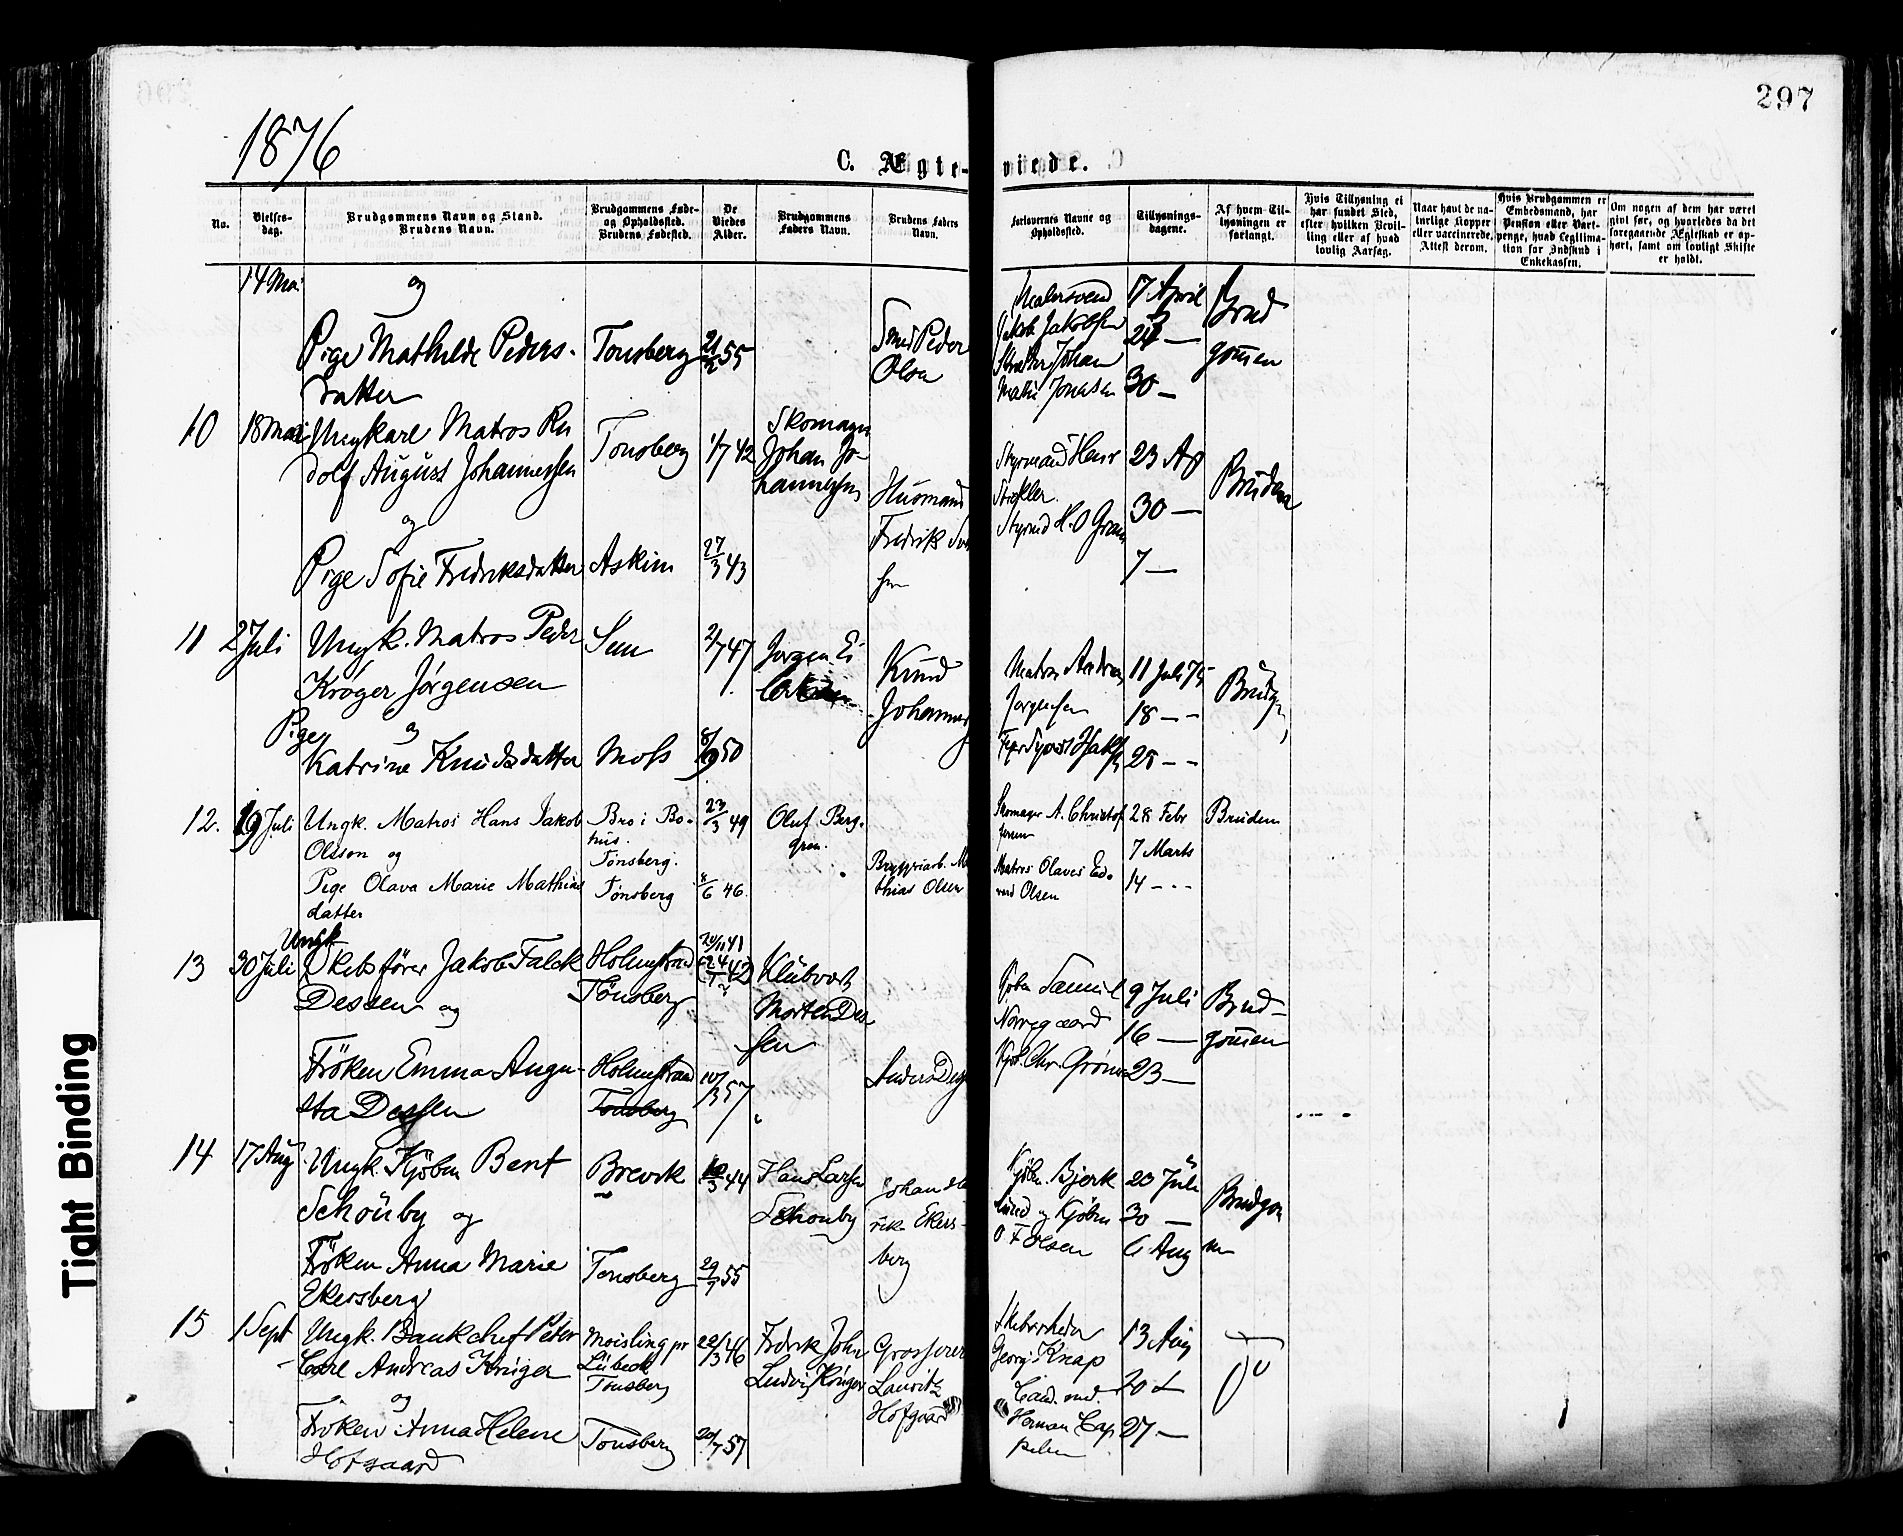 297
1876
C. Ægte-viede.
No.
Vielses-dag.
Brudgommens Navn og Stand.
Brudens Navn.
Brudgommens Føde-
og Opholdssted.
Brudens Fødested.
De
Viedes
Alder.
Brudgommens
Faders Navn.
Brudens Faders
Navn.
Forlovernes Navne og
Opholdssted.
Tillysnings-
dagene.
Af hvem Til-
lysningen er
forlangt.
Hvis Tillysning ei
har fundet Sted,
efter hvilken Bevil-
ling eller af hvad
lovlig Aarsag.
Naar havt de na-
turlige Kopper
eller vaccinerede,
Attest derom.
Hvis Brudgommen er
Embedsmand, har
Pension eller Vart-
penge, hvad Legitima-
tion for Indskud i
Enkekassen.
Om nogen af dem har været
givt før, og hvorledes da det
foregaaende Ægteskab er op-
hørt, samt om lovligt Skifte
er holdt.
14 Mai
og
Pige Mathilde Peders-
datter
Tonsberg
55
Smed Peder
Olsen
Malersvend
Jakob Jakobsen
Johan
Jonasen
17 April
24 —
30 —
Brud
gomen
10
18 Mai
Ungkarl Matros Ru
dolf August Johannessen
og
Pige Sofie Fredriksdatter
Tonsberg
Askim
1/7 42
27/3 43
Skomager
Johan Jo-
hannessen
Husmand
Fredrik
sen
Styrmand Henr
Styrmd H. O
23 Ap
30 —
7 —
Bruden
11
2 Juli
Ungk. Matros Peder
Krøger Jørgensen
og
Pige
Katrine Knudsdatter
Sem
Moss
2/7 47
50
Jørgen
Knud
Johannes
Matros Andreas
Jørgensen
11 Juli 75
18 — —
25 — —
Brudg
12.
19 Juli
Ungk. Matros Hans Jakob
Olsson og
Pige Olava Marie Mathias
datter
Bro i Bo-
hus.
Tønsberg.
Tønsberg
23/3 49
8/6 46.
Oluf Berg-
gren.
Bryggeriarb. Ma
thias Olsen
Skomager A. Christof
fersen
Matros Olaves Ed-
vard Olsen
28 Febr
7 Marts
14 - - -
Bruden
13
30 Juli
Ungk
Skibsfører Jakob Falck
Dessen og
Frøken Emma Augu-
sta Dessen
Holmestrand
Tönsberg
Holmestrand
Tonsberg
20/11 41
42
10/3 57
Klubvært
Morten Des-
sen
Anders Dess
Kjøbm Samuel
Norregaard
Kjøb. Chr. Grøn
9 Juli
16 —
23 —
Brud-
gomen
14
17 Aug
Ungk. Kjøbm Bent
Schönby og
Frøken Anna Marie
Ekersberg
Brevik
Tonsberg
44
29/7 55
Hans Larsen
Schonby
Johan
rik Ekers-
berg
Kjøbm. Bjerk
lund og Kjøbm
O F Olsen
23 Juli
30 —
6 Aug
Brudgom
men
15
1 Sept
Ungk. Bankchef Peter
Carl Andreas Krüger
og
Frøken Anna Helene
Hofgaard
Moisling pr
Lübeck
Tonsberg
Tonsberg
22/3 46
20/7 57
Fredrik John
Ludvig Krüger
Grosserer
Lauritz
Hofgaard
Skibsrheder
Georg Knap
Cand. med.
Herman Cap
pelen
13 Aug
20 —
27 —
Do
Tight Binding